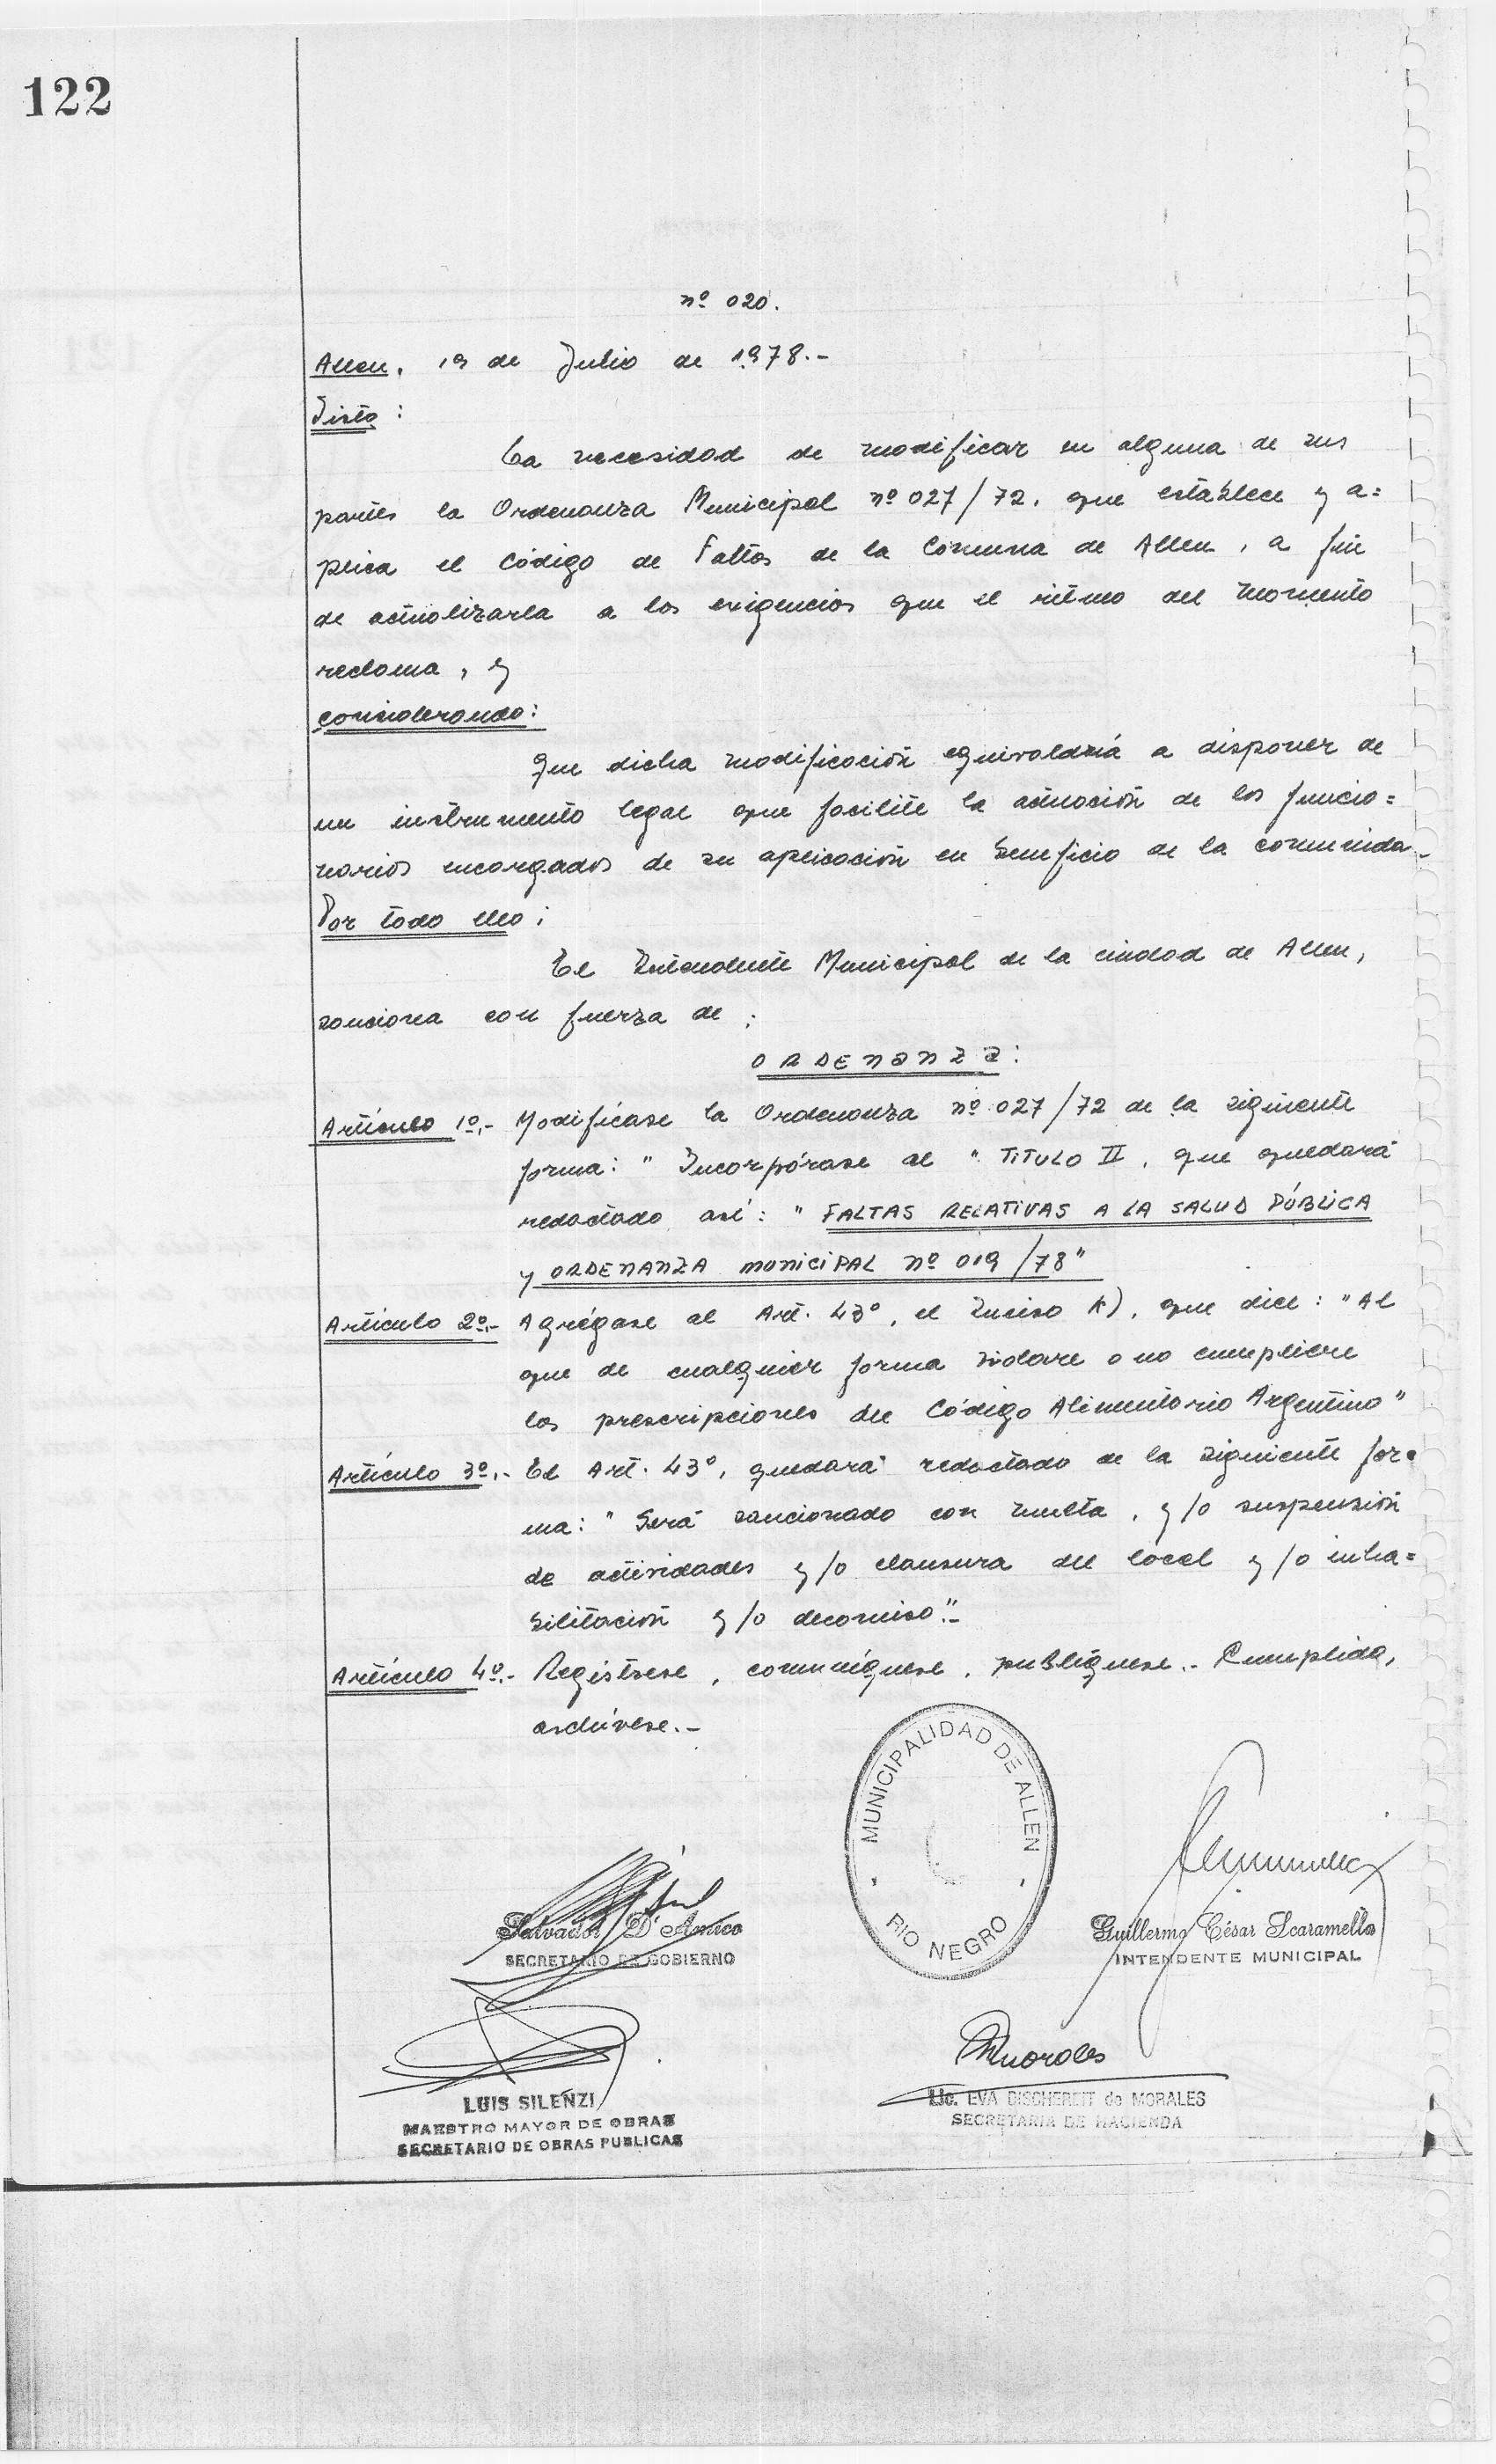 122
nº 020.
Allen, 19 de Julio de 1978.-
Visto:
La necesidad de modificar en alguna de sus
partes la Ordenanza Municipal nº 027/72, que establece y a=
plica el Código de Faltas de la Comuna de Allen, a fin
de actualizarla a las exigencias que el ritmo del momento
reclama, y
considerando:
Que dicha modificación equivaldría a disponer de
un instrumento legal que facilite la actuación de los funcio=
narios encargados de su aplicación en beneficio de la comunida-
Por todo ello;
El Intendente Municipal de la ciudad de Allen,
sanciona con fuerza de:
ORDENANZA:
Artículo 1º.- Modifícase la Ordenanza nº 027/72 de la siguiente
forma: "Incorpórase al "TITULO II, que quedará
redactado así: "FALTAS RELATIVAS A LA SALUD PÚBLICA
y ORDENANZA MUNICIPAL nº 019/78"
Artículo 2º.- Agrégase al Art. 43º, el Inciso K), que dice: "Al
que de cualquier forma violare o no cumpliere
las prescripciones del Código Alimentario Argentino"
Artículo 3º.- El Art. 43º, quedará redactado de la siguiente for=
ma: "Será sancionado con multa, y/o suspensión
de actividades y/o clausura del local y/o inha=
bilitación y/o decomiso".-
Artículo 4º.- Regístrese, comuníquese, publíquese.- Cumplido,
archívese.-
MUNICIPALIDAD DE ALLEN
- RIO NEGRO -
Salvador D'Amico
SECRETARIO DE GOBIERNO
Guillermo César Scaramella
INTENDENTE MUNICIPAL
Morales
LUIS SILENZI
MAESTRO MAYOR DE OBRAS
SECRETARIO DE OBRAS PUBLICAS
Lic. EVA DISCHEREIT de MORALES
SECRETARIA DE HACIENDA